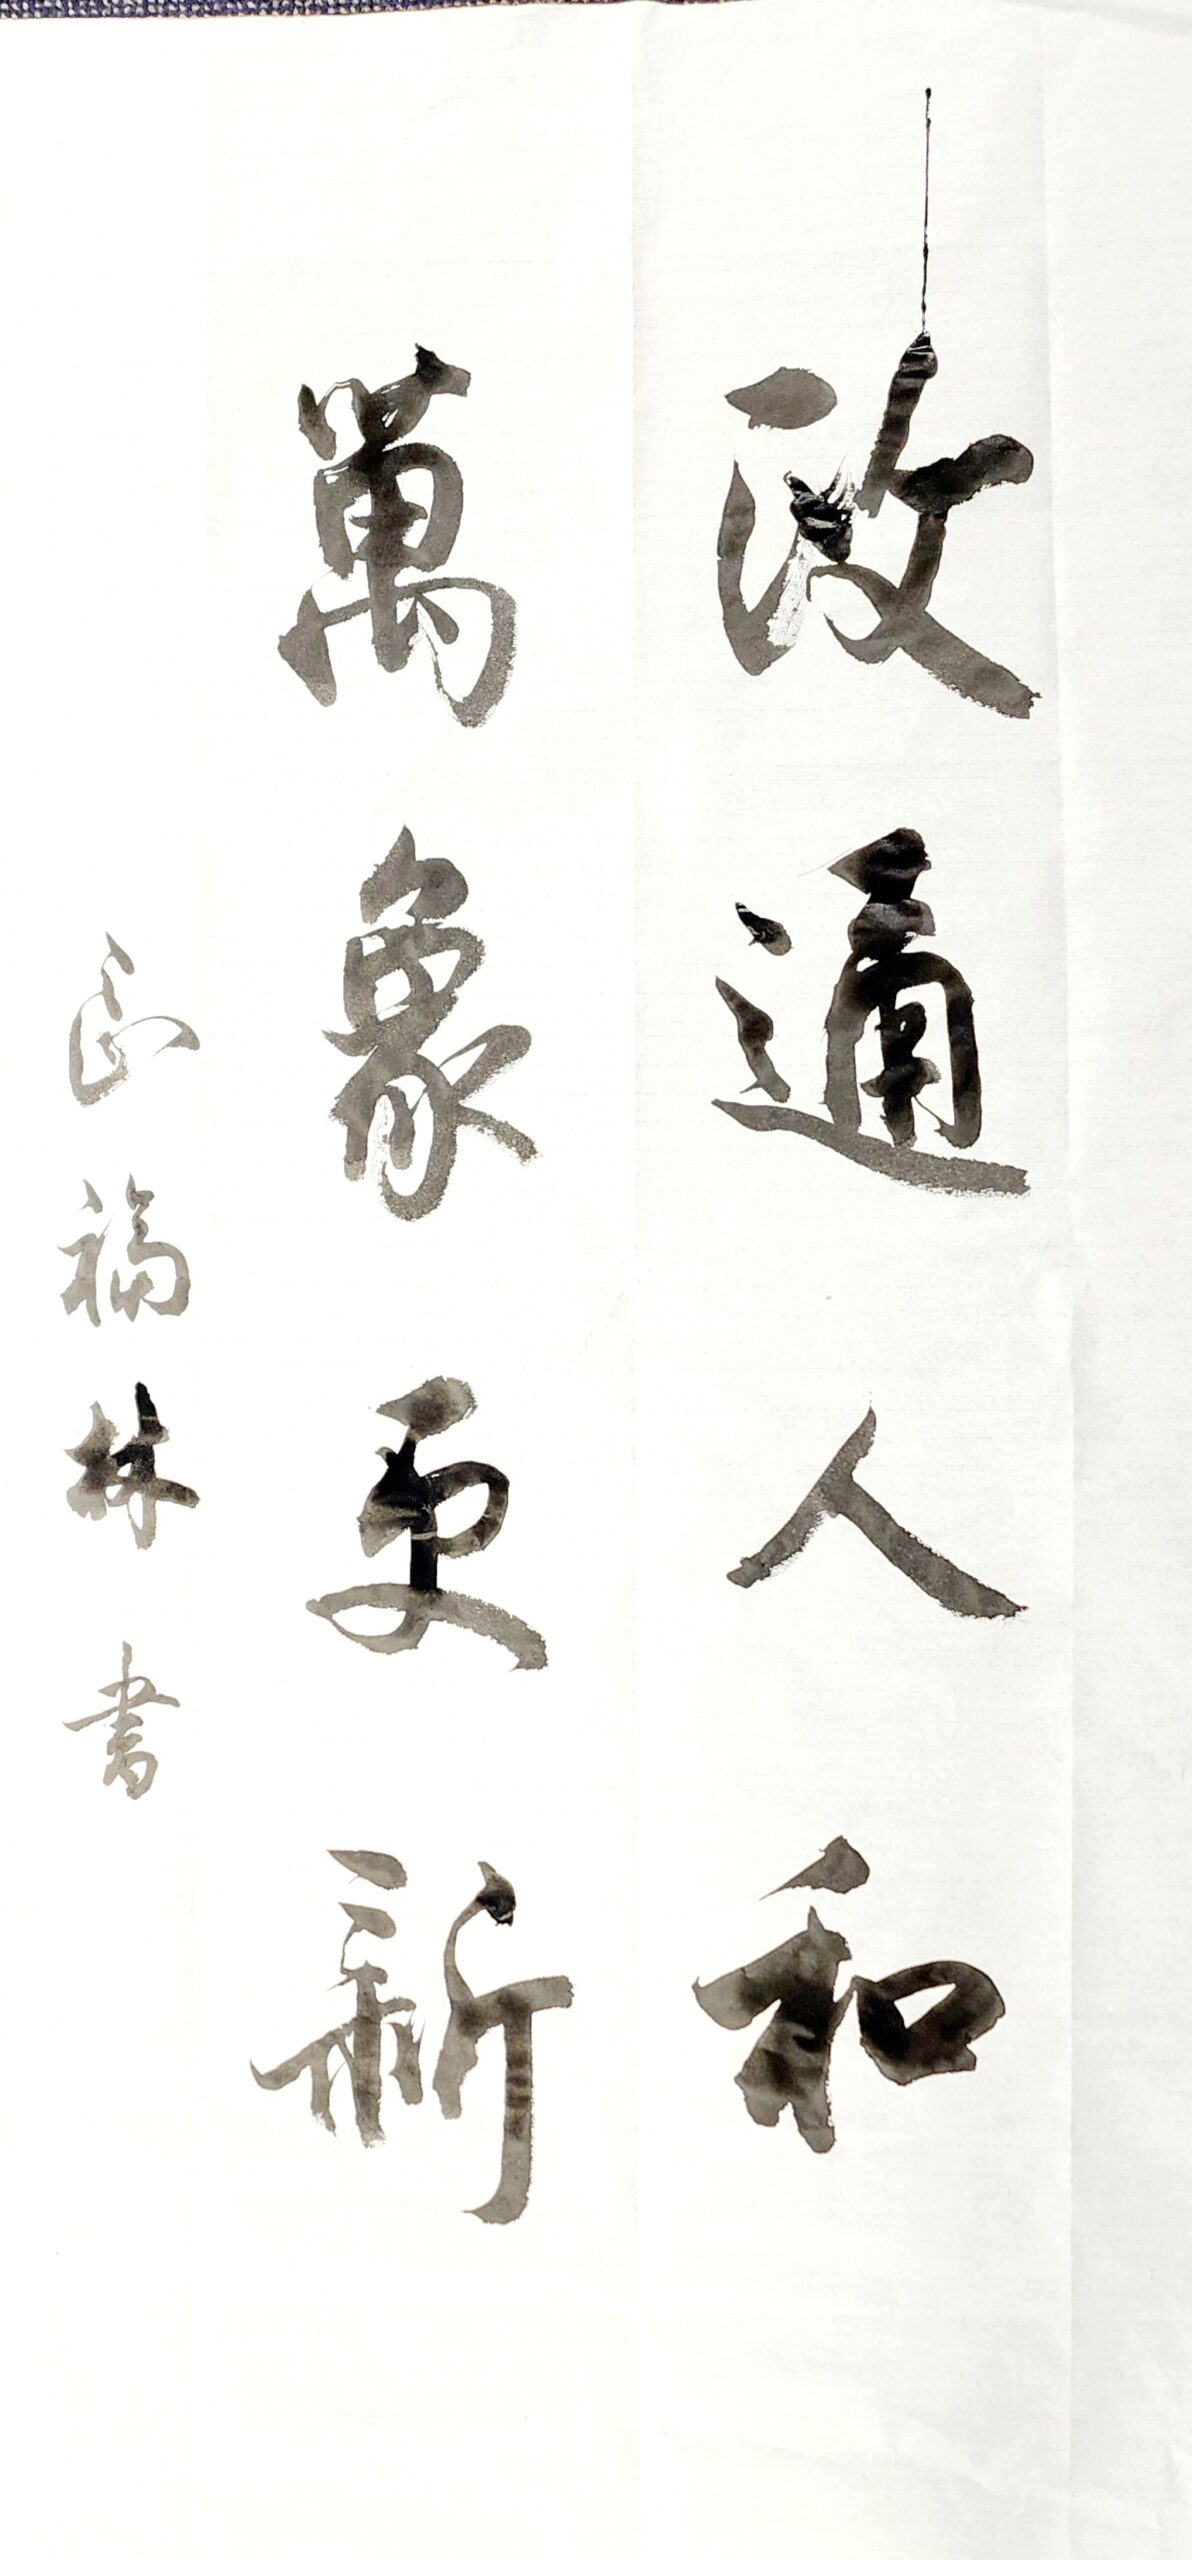 政通人和
萬象更新
福林書